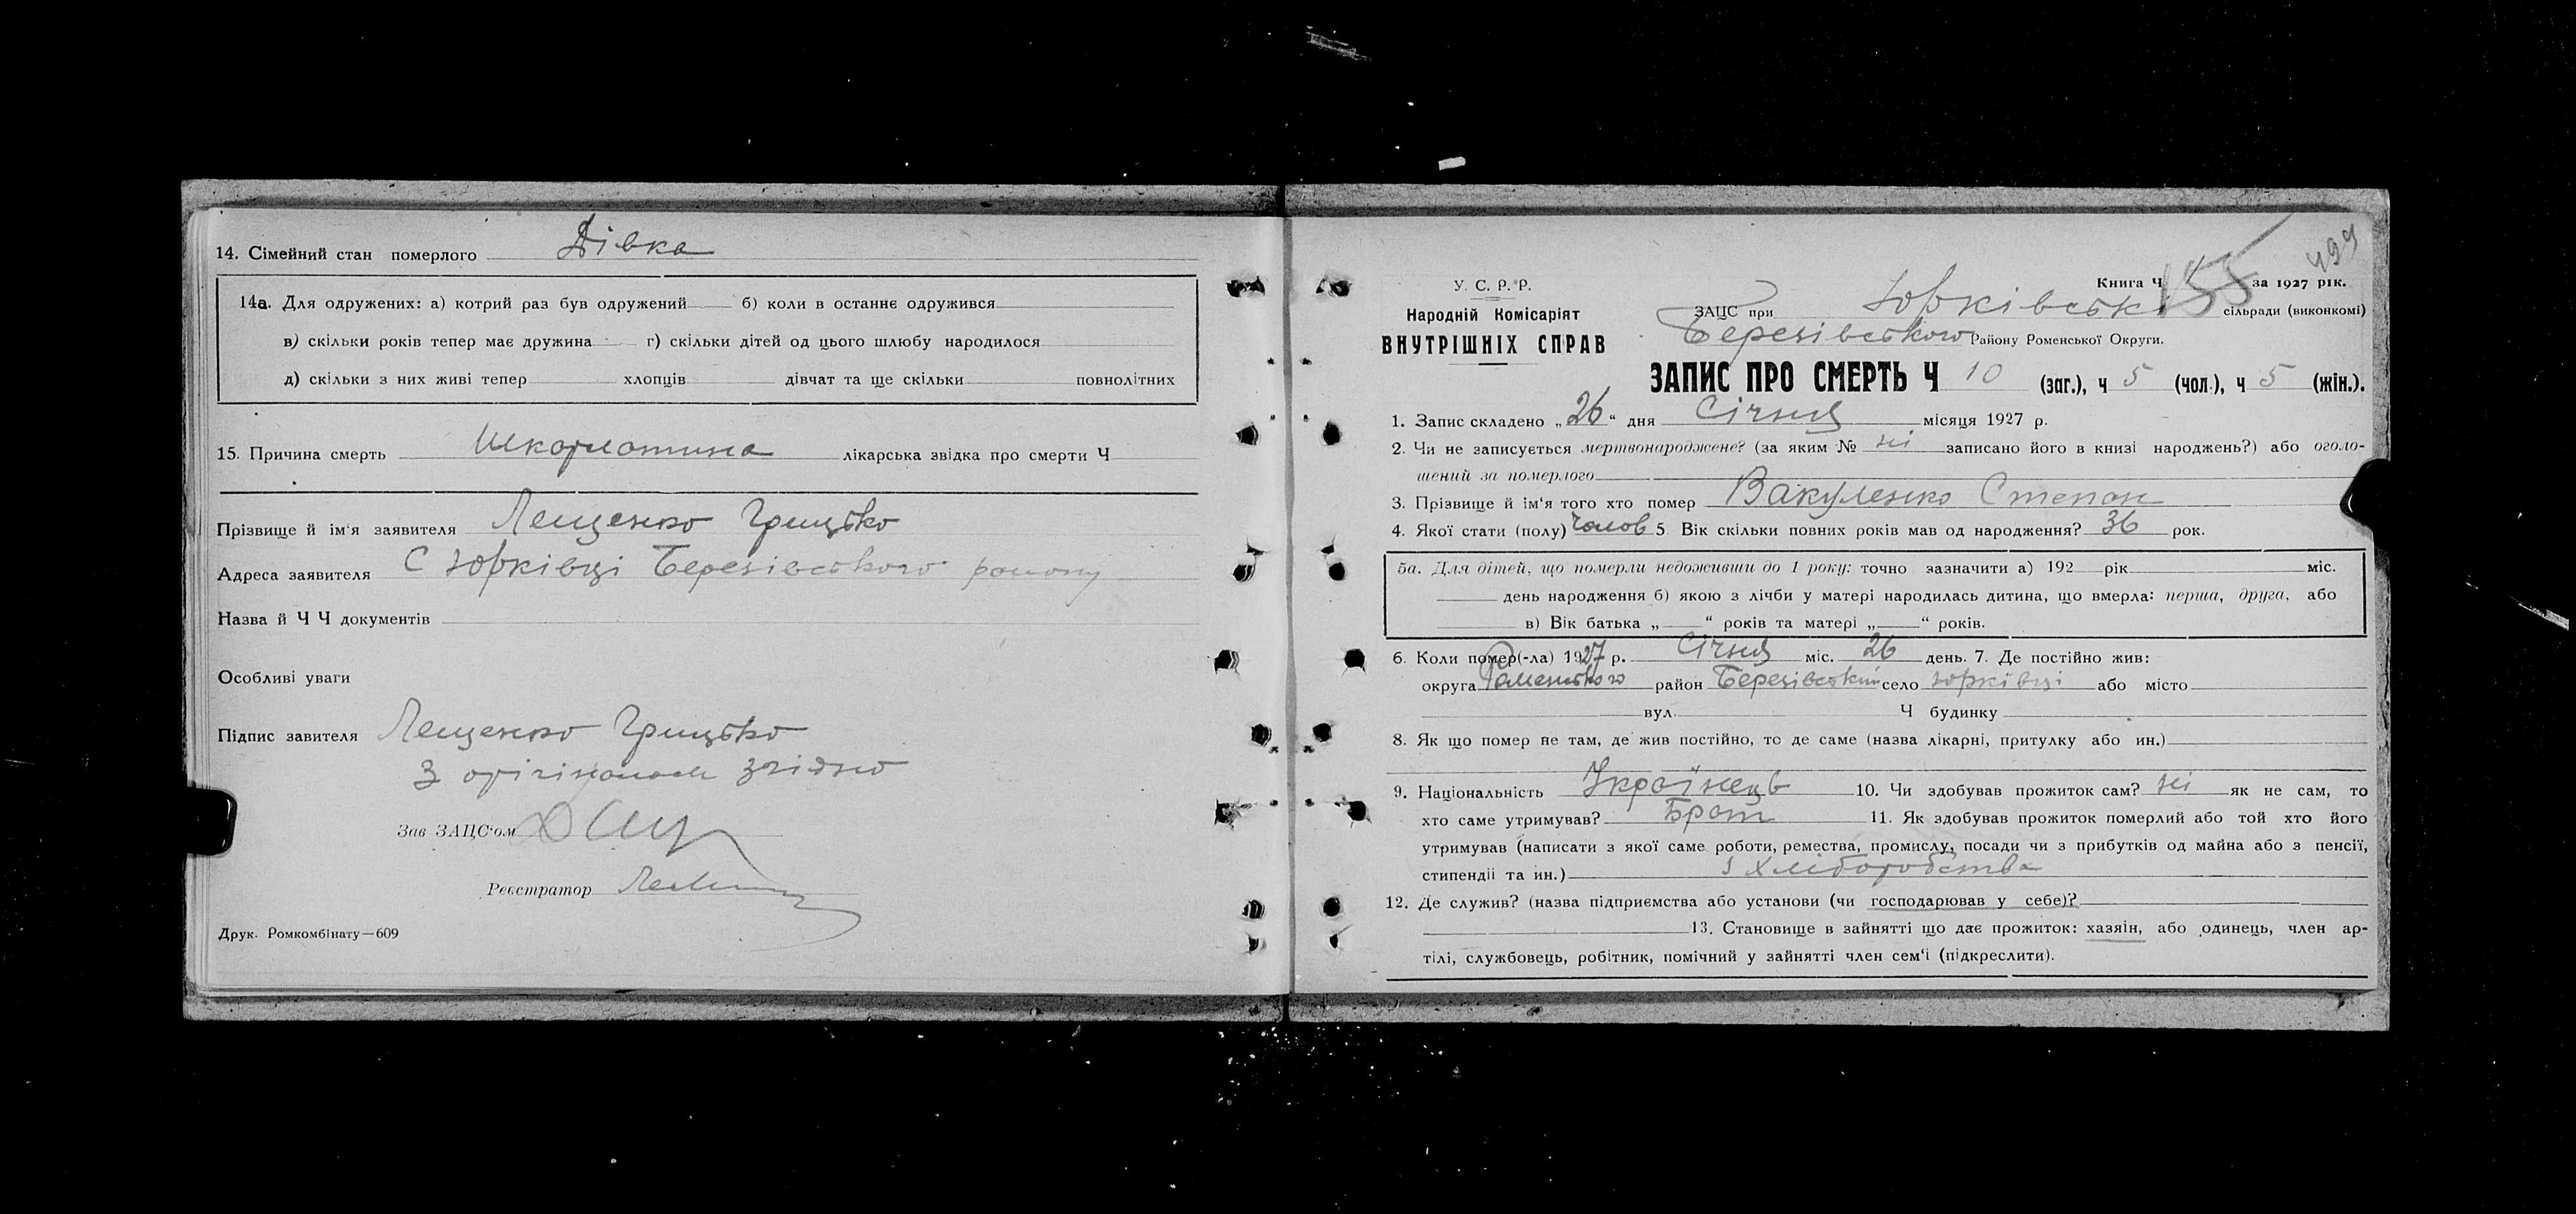 14. Сімейний стан померлого Дівка
14а. Для одружених: а) котрий раз був одружений б) коли в останнє одружився
в) скільки років тепер має дружина г) скільки дітей од цього шлюбу народилося
д) скільки з них живі тепер хлопців дівчат та ще скільки повнолітних
15. Причина смерть Шкорлотина лікарська звідка про смерти Ч
Прізвище й ім'я заявителя Лещенко Грицько
Адреса заявителя С Юрківці Березівського району
Назва й Ч Ч документів
Особливі уваги
Підпис завителя Лещенко Грицько
З орігіналом згідно
Зав ЗАЦС'ом
Реєстратор
Друк. Ромкомбінату—609
499
У. С. Р. Р.
Народній Комісаріят
ВНУТРІШНІХ СПРАВ
Книга Ч 155 за 1927 рік.
ЗАЦС при Юрківські сільради (виконкомі)
Березівського Району Роменської Округи.
ЗАПИС ПРО СМЕРТЬ Ч 10 (заг.), ч 5 (чол.), ч 5 (жін.).
1. Запис складено „26“ дня Січня місяця 1927 р.
2. Чи не записується мертвонароджене? (за яким № ні записано його в книзі народжень?) або оголо-
шений за померлого
3. Прізвище й ім'я того хто помер Вакуленко Степан
4. Якої стати (полу) чолов 5. Вік скільки повних років мав од народження? 36 рок.
5а. Для дітей, що померли недоживши до 1 року: точно зазначити а) 192 рік міс.
день народження б) якою з лічби у матері народилась дитина, що вмерла: перша, друга, або
в) Вік батька „ “ років та матері „ “ років.
6. Коли помер(-ла) 1927 р. Січня міс. 26 день. 7. Де постійно жив:
округа Роменського район Березівський село Юрківці або місто
вул. Ч будинку
8. Як що помер не там, де жив постійно, то де саме (назва лікарні, притулку або ин.)
9. Національність Українець 10. Чи здобував прожиток сам? ні як не сам, то
хто саме утримував? Брат 11. Як здобував прожиток померлий або той хто його
утримував (написати з якої саме роботи, ремества, промислу, посади чи з прибутків од майна або з пенсії,
стипендії та ин.) з хліборобства
12. Де служив? (назва підприємства або установи (чи господарював у себе)?
13. Становище в зайнятті що дає прожиток: хазяін, або одинець, член ар-
тілі, службовець, робітник, помічний у зайнятті член сем'ї (підкреслити).